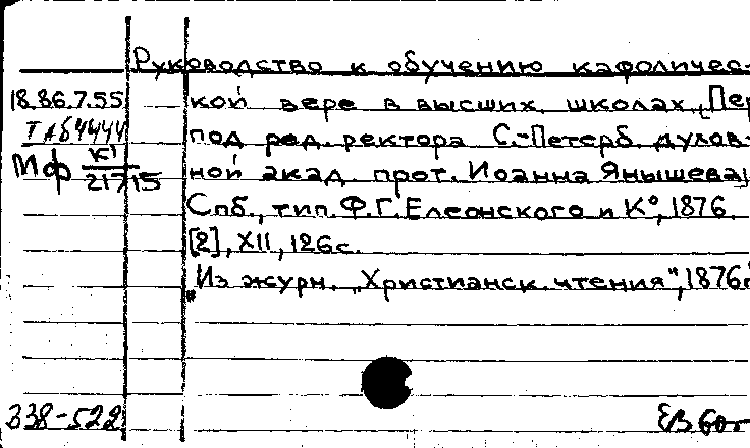 Руководство к обучению кафоличес-
18.86.7.55 кой вере в высших школах. [Пер
под ред. ректора С.-Петерб. духов-
Мф К1/21715 ной акад. прот. Иоанна Янышева]
Спб., тип. Ф.Г. Елеонского и К°, 1876.
[2], XII, 126 с.
"Из журн. „Христианск. чтения", 1876
338-522